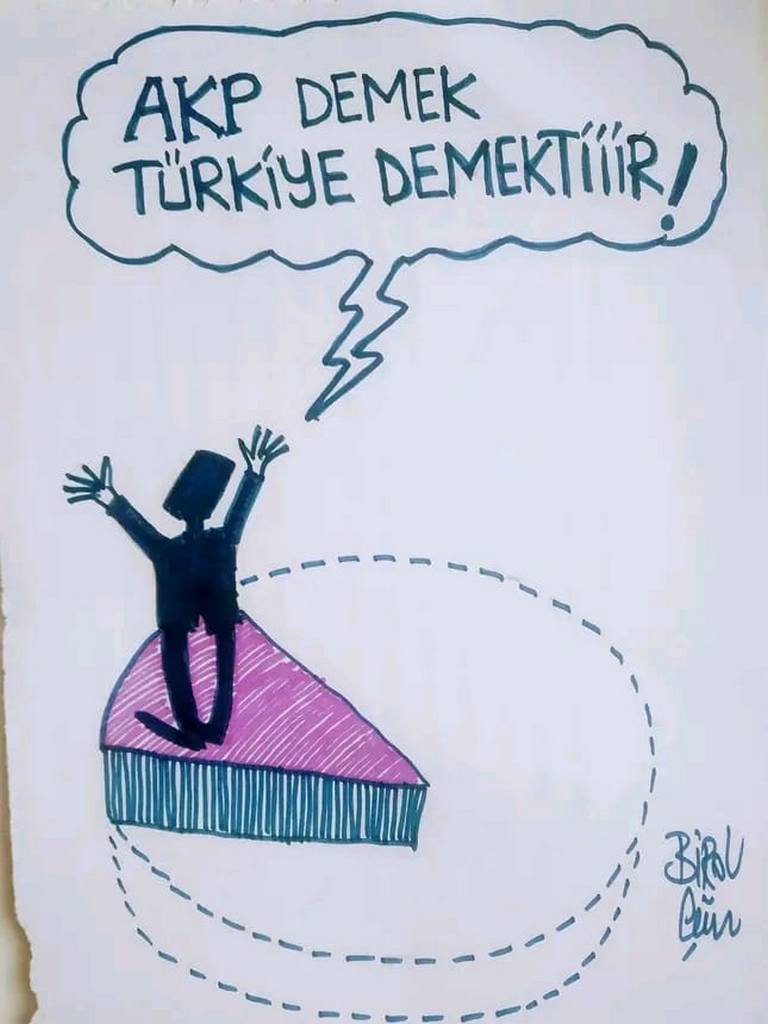 AKP DEMEK
TÜRKİYE DEMEKTİİİR!
BİROL
ÇÜN